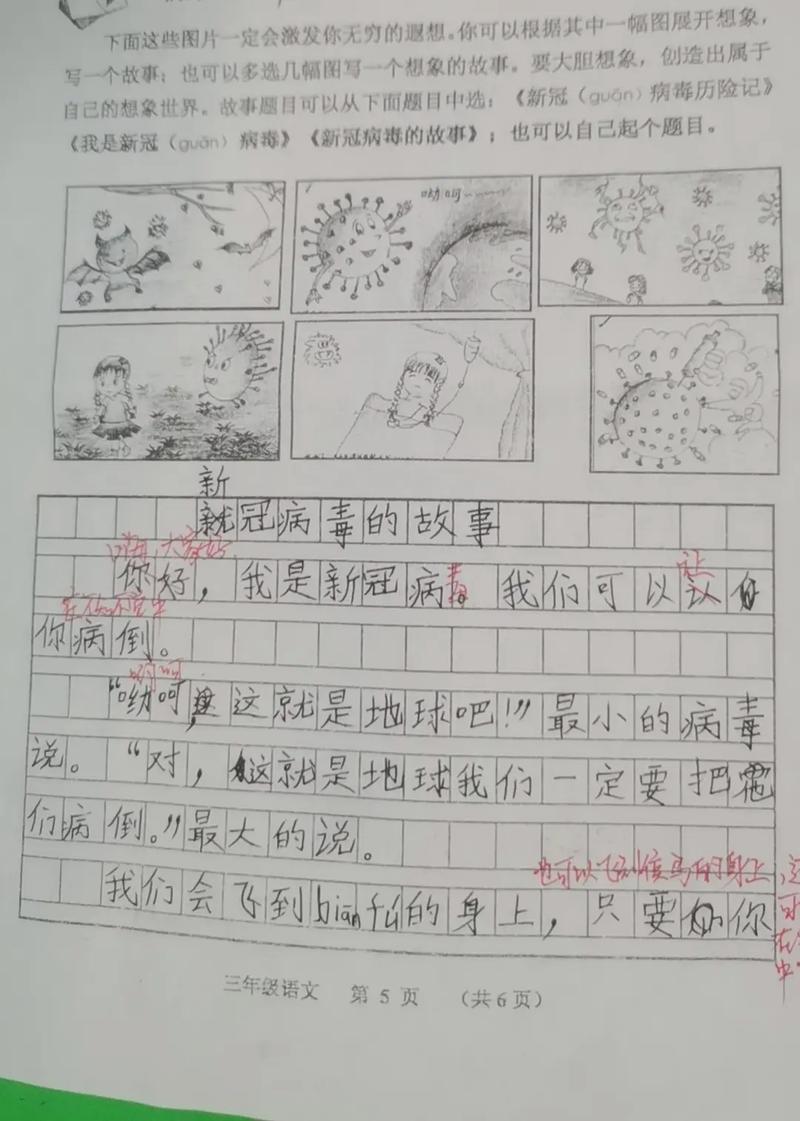 下面这些图片一定会激发你无穷的遐想。你可以根据其中一幅图展开想象，
写一个故事；也可以多选几幅图写一个想象的故事。要大胆想象，创造出属于
自己的想象世界。故事题目可以从下面题目中选：《新冠（guān）病毒历险记》
《我是新冠（guān）病毒》《新冠病毒的故事》；也可以自己起个题目。
呦呵
新
冠病毒的故事
嗨，大家好
你好，我是新冠病毒。我们可以议
让
你病倒。
呵呵
“呦呵，这就是地球吧！”最小的病毒
说。“对，这就是地球我们一定要把
们病倒。”最大的说。
也可以飞到 的身上，
我们会飞到bian fú的身上，只要 你
三年级语文 第5页 （共6页）